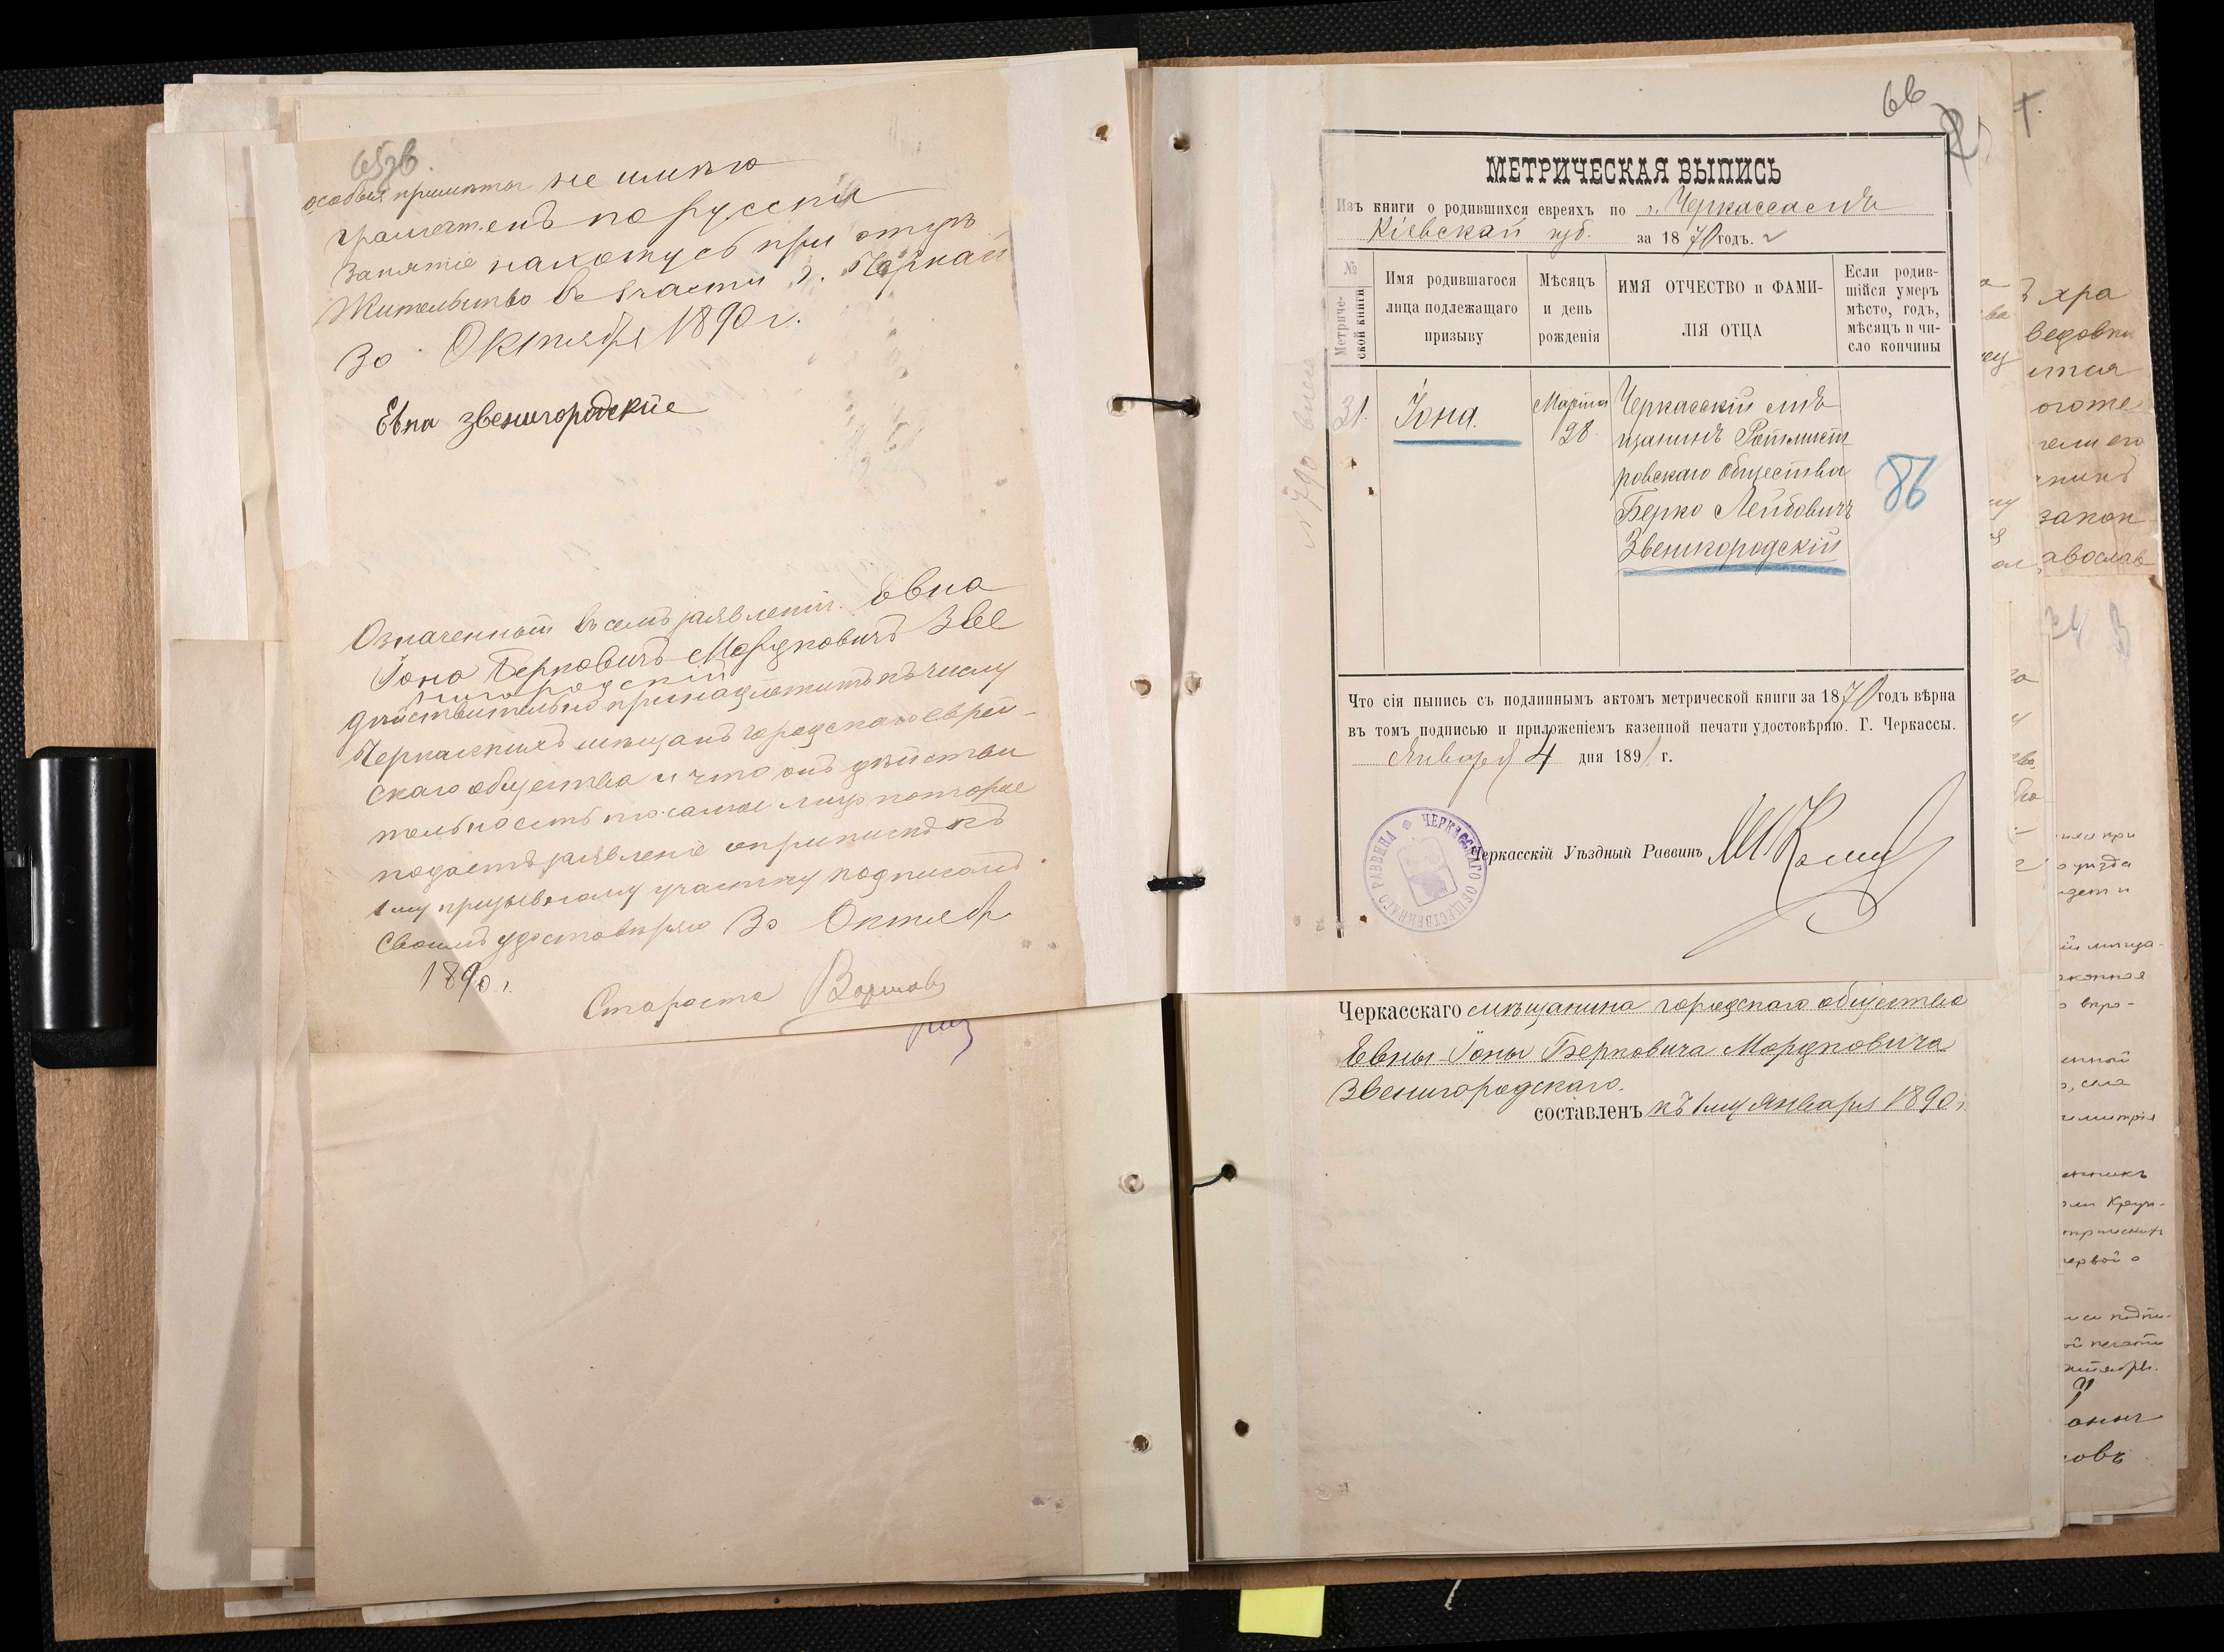 65зв.
особыя приметы не имѣю
грамотенъ по русски
Занятіе нахожусь при отцѣ
Жительство въ 1 части г. Черкас
30 Октября 1890 г.
Евна звенигородскïе
Означенный въ семъ заявленіи Евна
Іона Берковичъ Мордковичъ Зве
нигородскій
дѣйствительно принадлежитъ къ числу
Черкасскихъ мѣщанъ городскаго еврей-
скаго общества и что онъ дѣйстви
тельно есть то самое лицо которое
подаетъ заявленіе о припискѣ къ
1му призывному участку подписомъ
своимъ удостовѣряю 30 Октября
1890 г.
Староста
66
МЕТРИЧЕСКАЯ ВЫПИСЬ
Изъ книги о родившихся евреяхъ по г. Черкассамъ
Кіевской губ. за 1870 годъ.
№ Метриче-
ской книги
Имя родившагося
лица подлежащаго
призыву
Мѣсяцъ
и день
рожденія
ИМЯ ОТЧЕСТВО и ФАМИ-
ЛІЯ ОТЦА
Если родив-
шійся умеръ
мѣсто, годъ,
мѣсяцъ и чи-
сло кончины
31.
Іона.
Марта
28.
Черкасскій мѣ
щанинъ Ротмист
ровскаго Общества
Берко Лейбовичъ
Звенигородскій
86
Что сія выпись съ подлиннымъ актомъ метрической книги за 1870 годъ вѣрна
въ томъ подписью и приложеніемъ казенной печати удостовѣряю. Г. Черкассы.
Января 4 дня 1891 г.
Черкасскій Уѣздный Раввинъ
ЧЕРКАССКАГО ОБЩЕСТВЕННАГО РАВВИНА
Черкасскаго мѣщанина городскаго общества
Евны-Іоны Берковича Мордковича
Звенигородскаго.
составленъ къ 1му Января 1890 г.